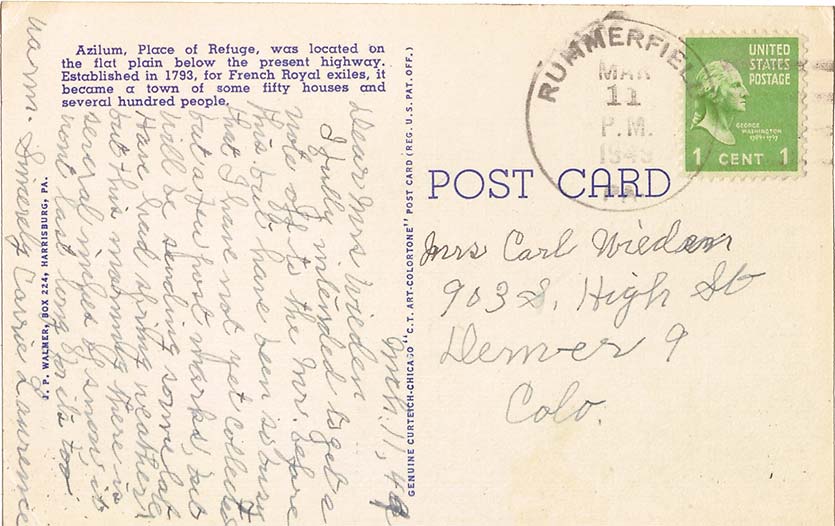 Azilum, Place of Refuge, was located on
the flat plain below the present highway.
Established in 1793, for French Royal exiles, it
became a town of some fifty houses and
several hundred people.
Mch. 11, 49
Dear Mrs Wieden
I fully intended to get a
note off to the Mr. before
this but have been so busy
that I have not yet collected
but a few post marks, but
will be sending some later
Have had spring weather
but this morning there is
several inches of snow, it
wont last long for its too
warm. Sincerely Carrie Laurence
J. P. WALMER, BOX 224, HARRISBURG, PA.
GENUINE CURTEICH-CHICAGO "C.T. ART-COLORTONE" POST CARD (REG. U.S. PAT. OFF.)
POST CARD
RUMMERFIELD
MAR
11
P.M.
1949
PA.
UNITED
STATES
POSTAGE
GEORGE
WASHINGTON
1789-1797
1 CENT 1
Mrs Carl Wieden
903 S. High St
Denver 9
Colo.